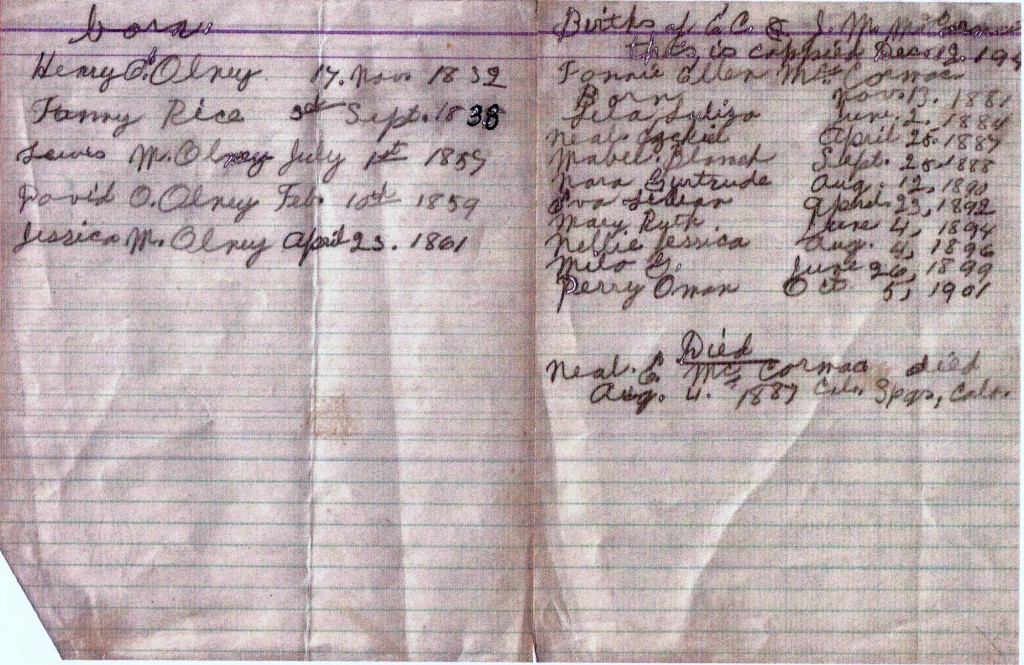 born
Henry O. Olney 17. Nov. 1832
Fanny Rice 3rd Sept. 1838
Lewis M. Olney July 1st 1859
David O. Olney Feb. 10th 1859
Jessica M. Olney April 23. 1861
Births of E.C. & J. M. Mc Cormac
this is coppied Dec. 12. 194
Fannie Ellen Mc Cormac
Born Nov. 13. 1881
Lila June. 2. 1884
Neal Ezekiel April 25. 1887
Mabel. Blanch Sept. 25. 1888
Nora Gertrude Aug. 12, 1890
Eva April. 23, 1892
Mary Ruth June 4, 1894
Nellie Jessica Aug. 4, 1896
Milo G. June 26, 1899
Perry Oman Oct. 5, 1901
Died
Neal. E. Mc Cormac died
Aug. 4. 1887 Colo. Spgs, Colo.